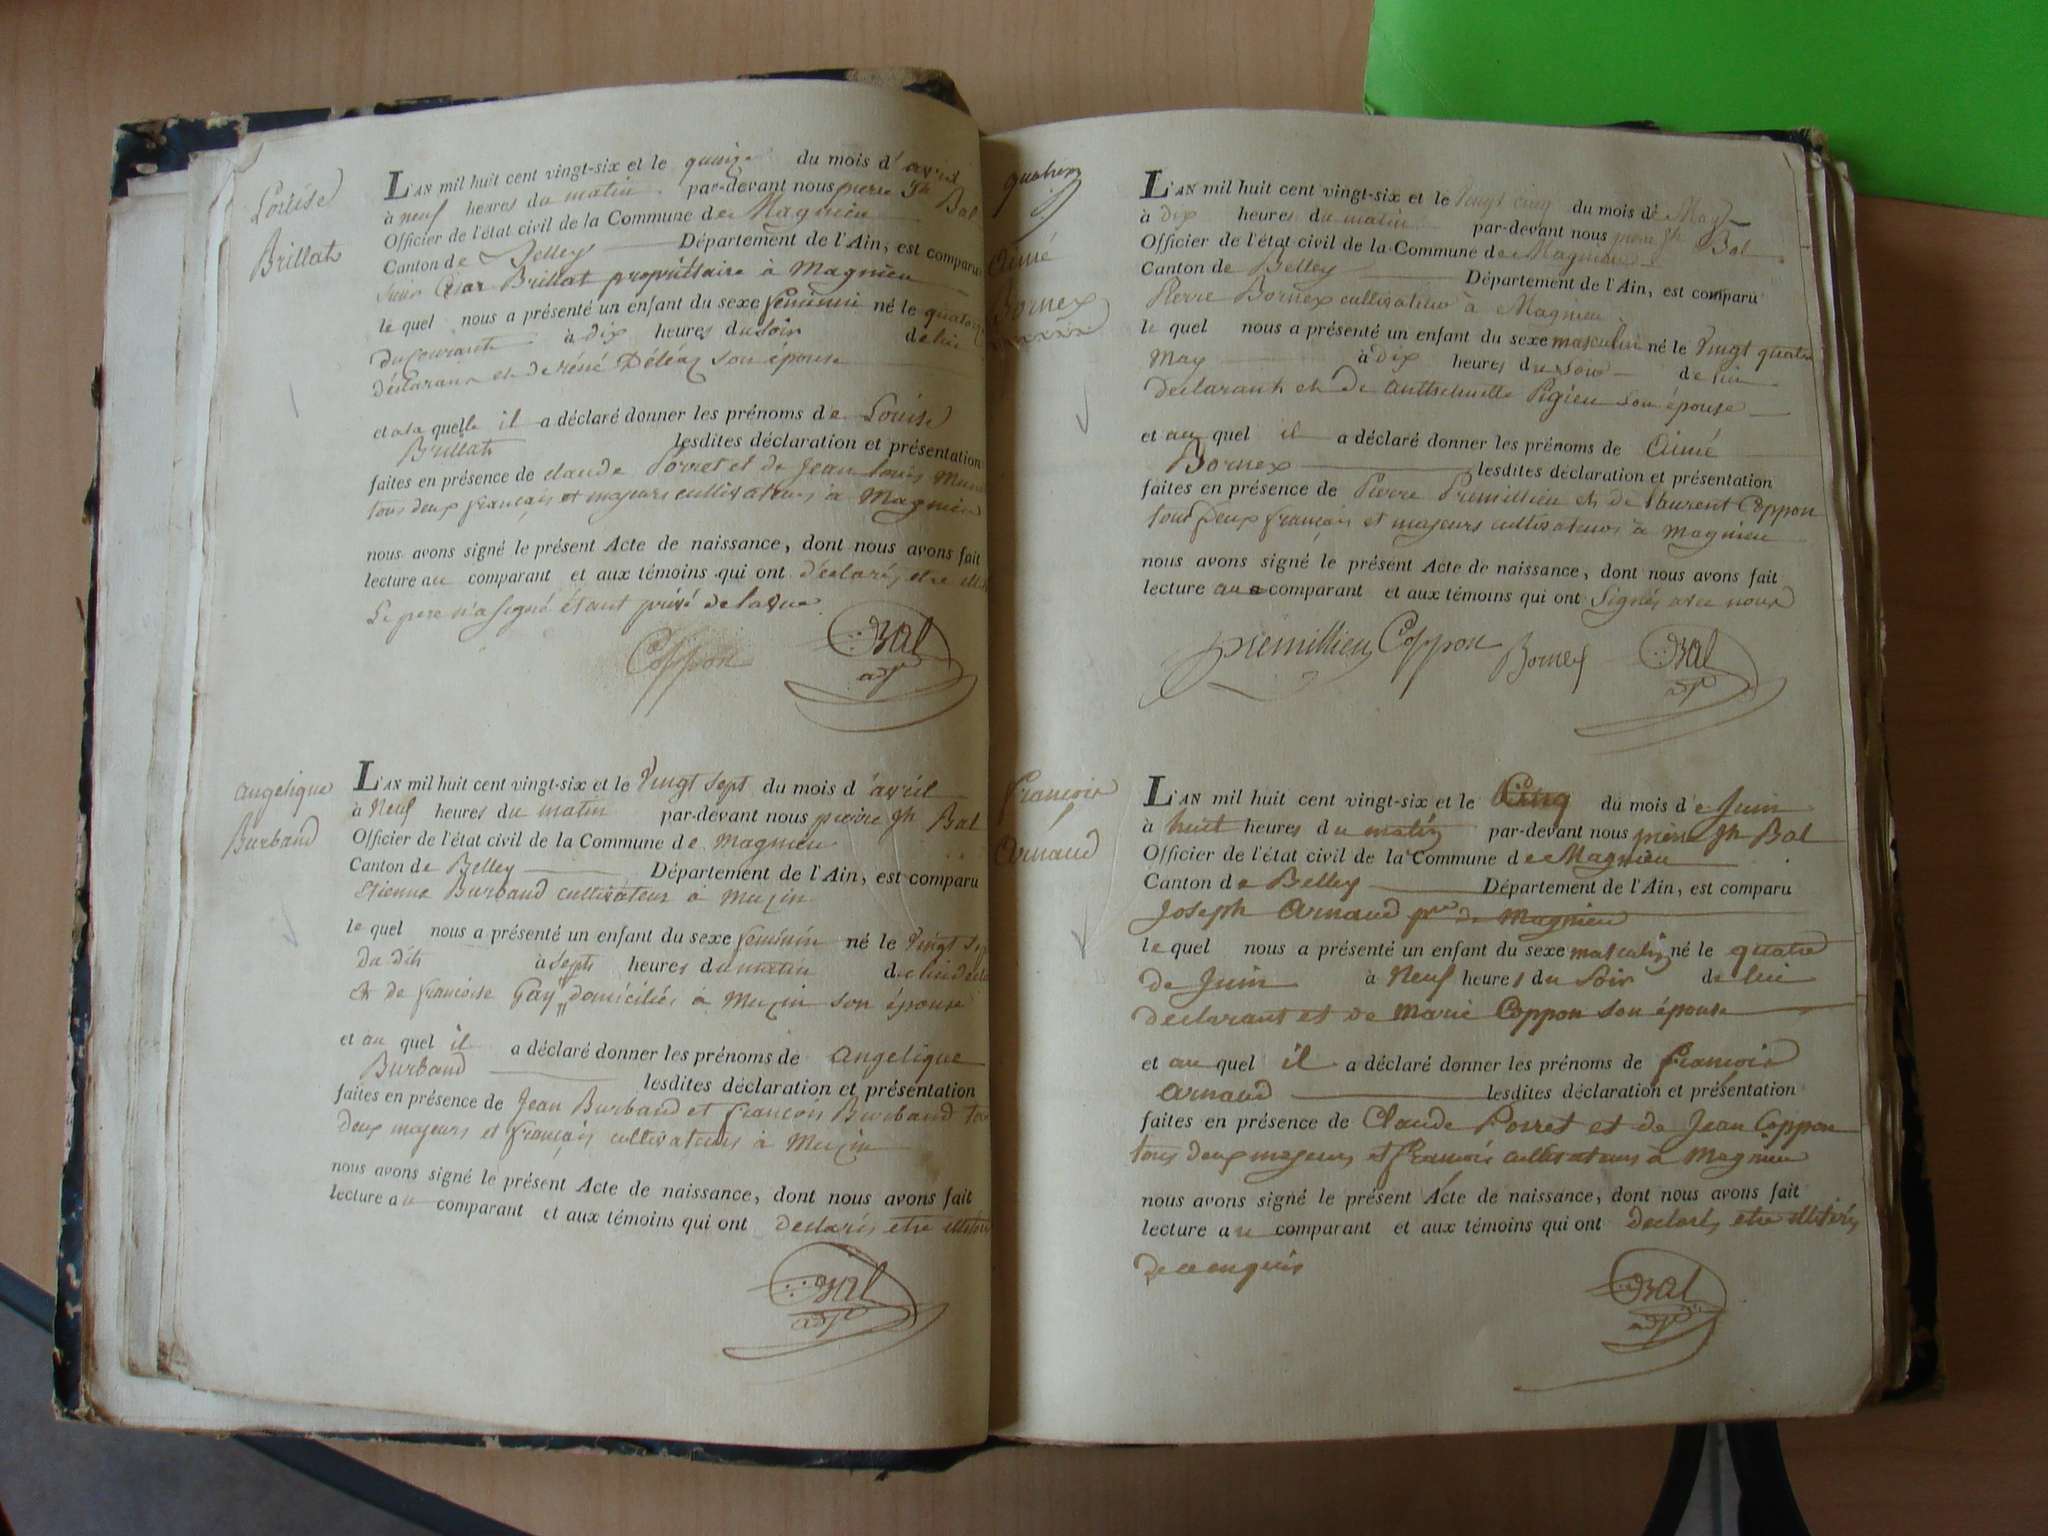 Louise
Brillat
L'AN mil huit cent vingt-six et le quinze du mois d'avril
à neuf heures du matin par-devant nous pierre Jh Bal
Officier de l'état civil de la Commune de Magnieu
Canton de Belley Département de l'Ain, est comparu
César Brillat propriétaire à Magnieu
le quel nous a présenté un enfant du sexe feminin né le quatorze
du courant à dix heures du soir de lui
déclarant et de son épouse
et a la quelle il a déclaré donner les prénoms de Louise
Brillat lesdites déclaration et présentation
faites en présence de claude Porret et de Jean Louis
tous deux français et majeurs cultivateurs à Magnieu
nous avons signé le présent Acte de naissance, dont nous avons fait
lecture au comparant et aux témoins qui ont déclarés etre
Le pere n'a signé étant privé de la vue
Coppon Bal
adj
angelique
Burbaud
L'AN mil huit cent vingt-six et le Vingt sept du mois d'avril
à Neuf heures du matin par-devant nous pierre Jh Bal
Officier de l'état civil de la Commune de magnieu
Canton de Belley Département de l'Ain, est comparu
Etienne Burbaud cultivateur à Muzin
le quel nous a présenté un enfant du sexe feminin né le Vingt
du dit à sept heures du matin de lui
et de francoise Gay domiciliés à Muzin son épouse
et au quel il a déclaré donner les prénoms de angelique
Burbaud lesdites déclaration et présentation
faites en présence de Jean Burbaud et françois Burbaud
deux majeurs et français cultivateurs à Muzin
nous avons signé le présent Acte de naissance, dont nous avons fait
lecture au comparant et aux témoins qui ont declarés etre
Bal
adj
Aimé
Bornex
L'AN mil huit cent vingt-six et le Vingt cinq du mois de May
à dix heures du matin par-devant nous pierre Jh Bal
Officier de l'état civil de la Commune de Magnieu
Canton de Belley Département de l'Ain, est comparu
Pierre Bornex cultivateur à Magnieu
le quel nous a présenté un enfant du sexe masculin né le Vingt quatre
May à dix heures du soir de lui
declarant et de Pigieu son épouse
et au quel il a déclaré donner les prénoms de Aimé
Bornex lesdites déclaration et présentation
faites en présence de Pierre Premillieu et de laurent Coppon
tous deux français et majeurs cultivateurs à magnieu
nous avons signé le présent Acte de naissance, dont nous avons fait
lecture au comparant et aux témoins qui ont Signés avec nous
premillieu Coppon Bornex Bal
adj
françois
Arnaud
L'AN mil huit cent vingt-six et le Cinq du mois de Juin
à huit heures du matin par-devant nous pierre Jh Bal
Officier de l'état civil de la Commune de Magnieu
Canton de Belley Département de l'Ain, est comparu
Joseph Arnaud pre de Magnieu
le quel nous a présenté un enfant du sexe masculin né le quatre
de Juin à Neuf heures du Soir de lui
declarant et de Marie Coppon son épouse
et au quel il a déclaré donner les prénoms de françois
Arnaud lesdites déclaration et présentation
faites en présence de Claude Porret et de Jean Coppon
tous deux majeurs et françois cultivateurs à Magnieu
nous avons signé le présent Acte de naissance, dont nous avons fait
lecture au comparant et aux témoins qui ont declarés etre illiterés
de ce enquis
Bal
adj